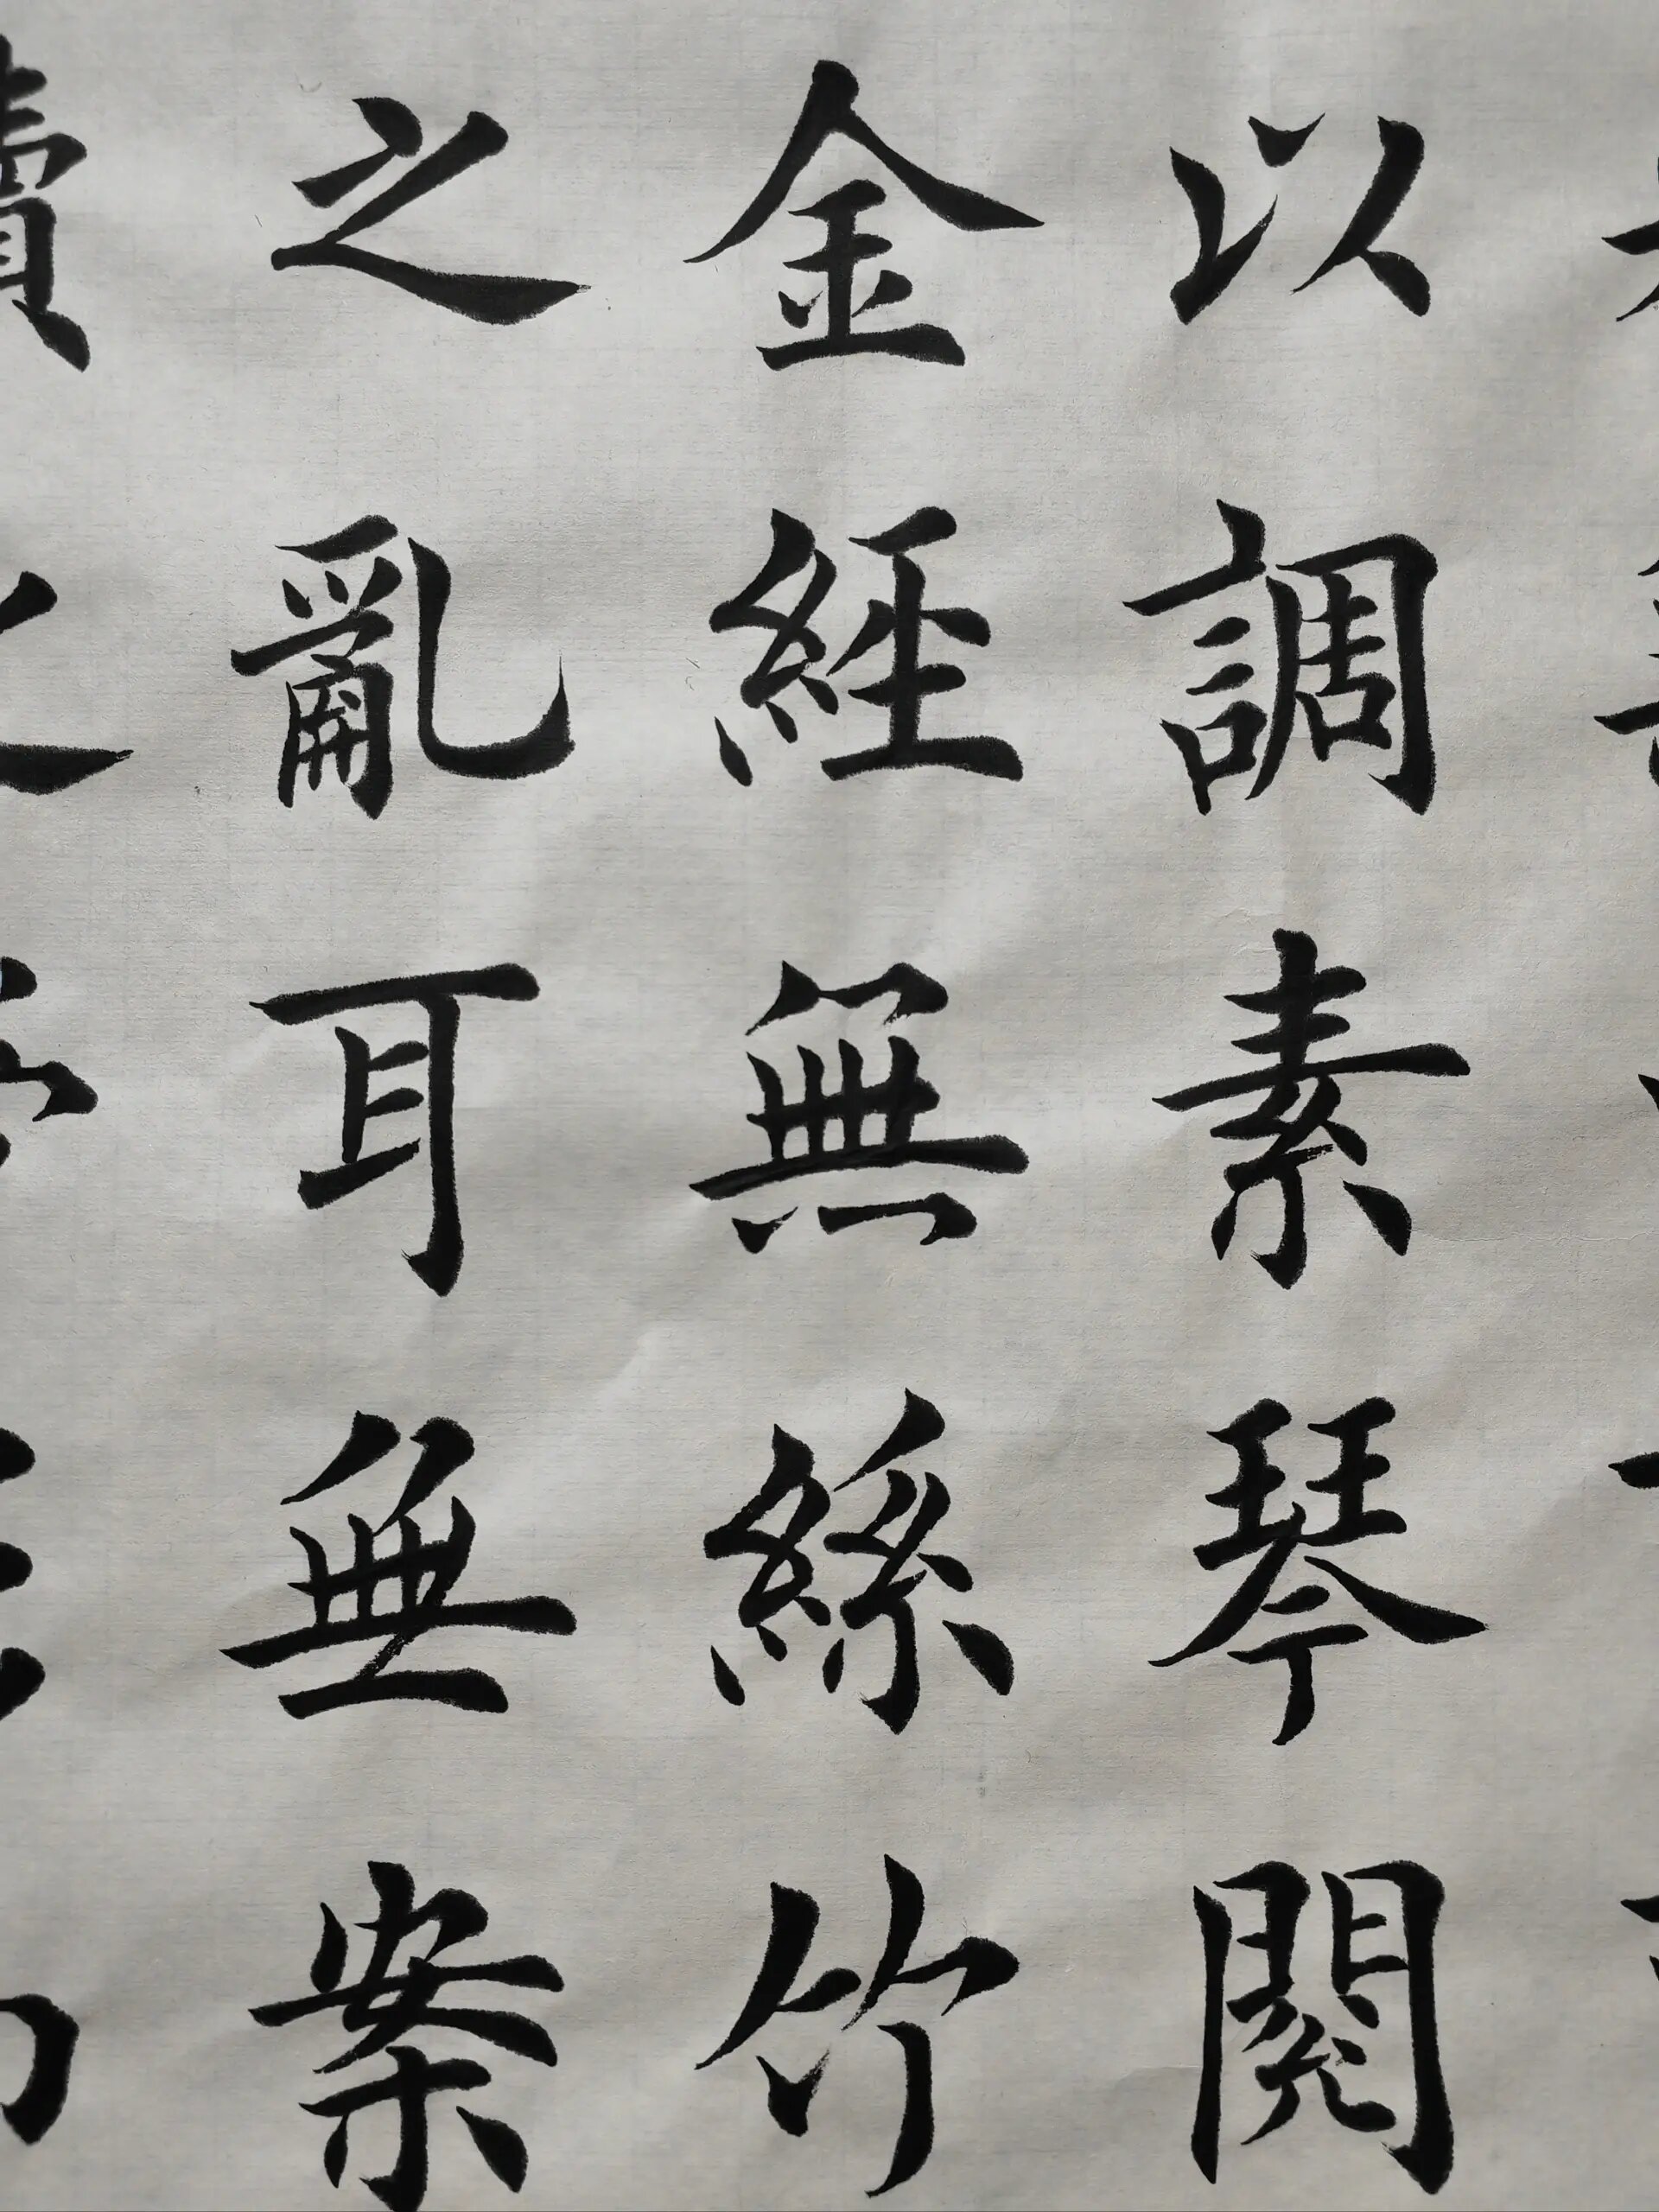 以調素琴閱
金經無絲竹
之亂耳無案
牘之